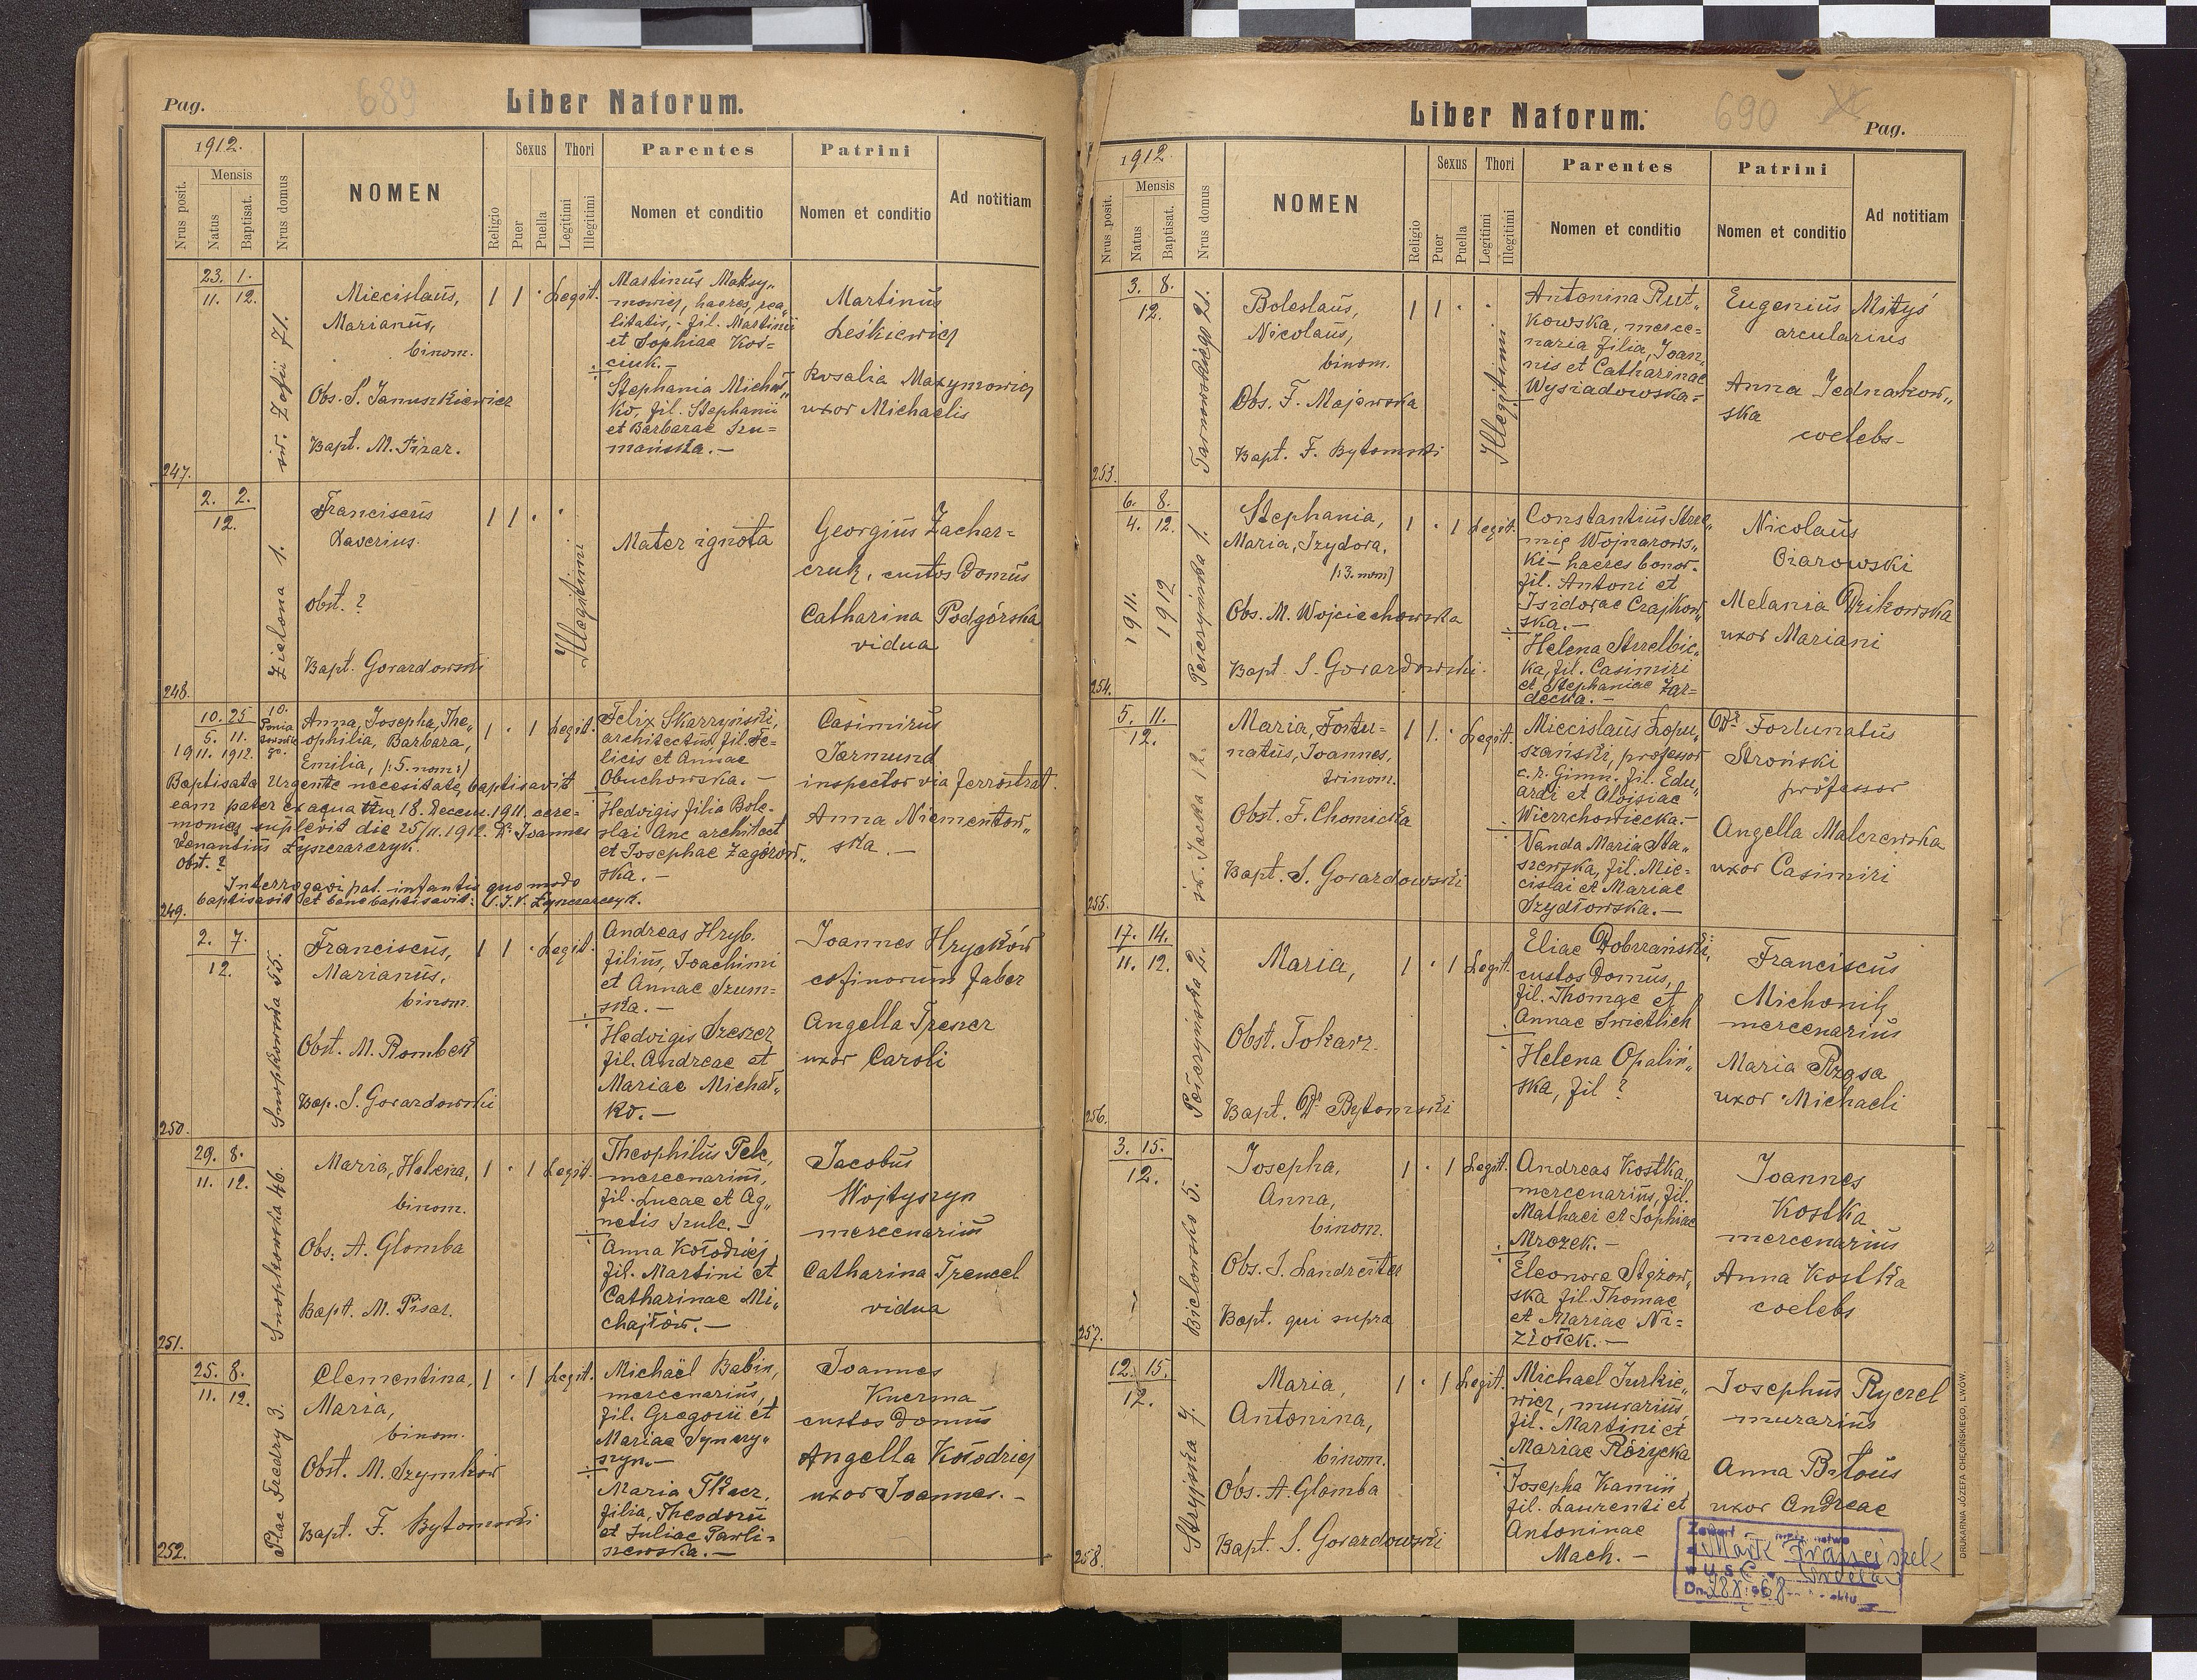 Pag.
689
Liber Natorum.
1912.
Nrus posit.
Mensis
Natus
Baptisat.
Nrus domus
NOMEN
Religio
Sexus
Puer
Puella
Thori
Legitimi
Illegitimi
Parentes
Nomen et conditio
Patrini
Nomen et conditio
Ad notitiam
247.
23. 1.
11. 12.
św. Zofii 71.
Miecislaus,
Marianus,
binom.
Obs. S. Januszkiewicz
Bapt. M. Pisar.
1 1 · Legit.
Martinus Maksy„
mowicz, haeres, rea„
litatis, - fil. Martinii
et Sophiae Kos=
ciuk. -
Stephania Michał„
ko, fil. Stephanii
et Barbarae Szu=
mańska. -
Martinus
Leśkiewicz
Rosalia Maxymowicz
uxor Michaelis
248.
2. 2.
12.
Zielona 1.
Franciscus
Xaverius.
obst. ?
Bapt. Gorazdowski
1 1 · ·
Illegitimi
Mater ignota
Georgius Zachar=
czuk, custos Domus
Catharina Podgórska
vidua
249.
10. 25
5. 11.
1911. 1912.
10.
Ponia
towskie
go.
Anna, Josepha, The„
ophilia, Barbara,
Emilia, (:5. nom:)
1 · 1 Legit.
Baptisata Urgente necesitate, baptisavit
eam pater ex aqua ttu 18. Decem. 1911. cere=
monies suplevit die 25/11. 1912. Dr. Joannes
Venantius Łyszczarczyk.
Obst. ?
Interrogavi pat. infantis quo modo
baptisavit et bene baptisavit:
Felix Skarzyński,
architectus, fil. Fe=
licis et Annae
Obuchowska. -
Hedvigis filia Bole=
slai Anc architect
et Josephae Zagórow„
ska. -
Casimirus
Jarmund
inspector via ferrostrat.
Anna Niementow„
ska. -
250.
2. 7.
12.
Snopkowska 55.
Franciscus,
Marianus,
binom.
Obst. M. Rombek
Bap. S. Gorazdowski
1 1 · Legit.
Andreas Hryb.
filius, Joachimi
et Annae Szum=
ska. -
Hedvigis Szeszez
fil. Andreae et
Mariae Michał„
ko. -
Joannes Hryćków
cofinorum faber
Angella Treszer
uxor Caroli
251.
29. 8.
11. 12.
Snopkowska 46.
Maria, Helena,
binom.
Obs. A. Glomba
Bapt. M. Pisar.
1 · 1 Legit.
Theophilus Pelc,
mercenarius,
fil. Lucae et Ag„
netis Szulc. -
Anna Kołodziej
fil. Martini et
Catharinae Mi„
chajłow. -
Jacobus
Wojtyszyn
mercenarius
Catharina Trencel
vidua
252.
25. 8.
11. 12.
Plac Fredry 3.
Clementina,
Maria,
binom.
Obst. M. Szymków
Bapt. F. Bytomski
1 · 1 Legit.
Michaël Babin,
mercenarius,
fil. Gregorii et
Mariae Synczy„
szyn. -
Maria Tkacz,
filia, Theodorii
et Juliae Pawli=
szewska. -
Joannes
Kuerma
custos Domus
Angella Kołodziej
uxor Joannes. -
Liber Natorum.
690
Pag.
1912
Nrus posit.
Mensis
Natus
Baptisat.
Nrus domus
NOMEN
Religio
Sexus
Puer
Puella
Thori
Legitimi
Illegitimi
Parentes
Nomen et conditio
Patrini
Nomen et conditio
Ad notitiam
253.
3. 8.
12.
Tarnowskiego 21.
Boleslaus,
Nicolaus,
binom.
Obs. F. Majewska
Bapt. F. Bytomski
1 1 · ·
Illegitimi
Antonina Rut„
kowska, merce=
naria filia, Joan„
nis et Catharinae
Wysiadowska =
Eugenius Mityś
arcularius
Anna Jednakow„
ska
coelebs -
254.
6. 8.
4. 12.
1911.
1912
Pełczyńska 1.
Stephania,
Maria, Izydora,
(:3. nom)
Obs. M. Wojciechowska
Bapt. S. Gorazdowski.
1 · 1 Legit.
Constantius Strze„
mię Wojnarows„
ki - haeres bonor.
fil. Antoni et
Isidorae Czajkow„
ska. -
Helena Strzelbic„
ka, fil. Casimiri
et Stephaniae Zar=
decka. -
Nicolaus
Ożarowski
Melania Dzikowska
uxor Mariani
255.
5. 11.
12.
św. Jacka 12.
Maria, Fortu=
natus, Joannes,
trinom.
Obst. F. Chomicka
Bapt. S. Gorazdowski
1 1. · Legit.
Miecislaus Łopu„
szański, professor
c. k. Gimn. fil. Edu„
ardi et Aloisiae
Wierzchowiecka. -
Vanda Maria Sta„
szewska, fil. Mie=
cislai et Mariae
Szydłowska. -
Dr. Fortunatus
Stroński
professor
Angella Malczewska
uxor Casimiri
256.
17. 14.
11. 12.
Pełczyńska 2.
Maria,
Obst. Tokarz
Bapt. Dr Bytomski
1 · 1 Legit.
Eliae Dobrzański,
custos Domus,
fil. Thomae et
Annae Swietlich
Helena Opaliń„
ska, fil ?
Franciscus
Michonik
mercenarius
Maria Rzasa
uxor Michaeli
257.
3. 15.
12.
Bielowski 5.
Josepha,
Anna,
binom.
Obs. J. Landreiter
Bapt. qui supra
1 · 1 Legit.
Andreas Kostka
mercenarius, fil.
Mathaei et Sophiae
Mrozek. -
Eleonora Stęzow„
ska fil. Thomae
et Mariae Ni=
ziołek. -
Joannes
Kostka
mercenarius
Anna Kostka
coelebs
258.
12. 15.
12.
Stryjska 7.
Maria,
Antonina,
binom.
Obs. A. Glomba
Bapt. S. Gorazdowski
1 · 1 Legit.
Michael Jurkie„
wicz, murarius
fil. Martini et
Mariae Różycka
Josepha Kamiń
fil. Laurenti et
Antoninae
Mach. -
Josephus Ryczel
murarius
Anna Bitous
uxor Andreae
Franciszek
DRUKARNIA JÓZEFA CHĘCIŃSKIEGO, LWÓW.